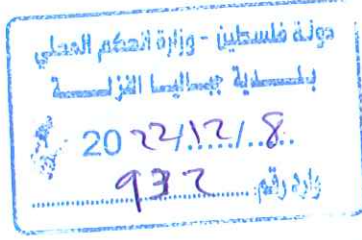 دولة فلسطين - وزارة الحكم المحلي
بلدية جباليا النزلة
2022/12/8
وارد رقم 932